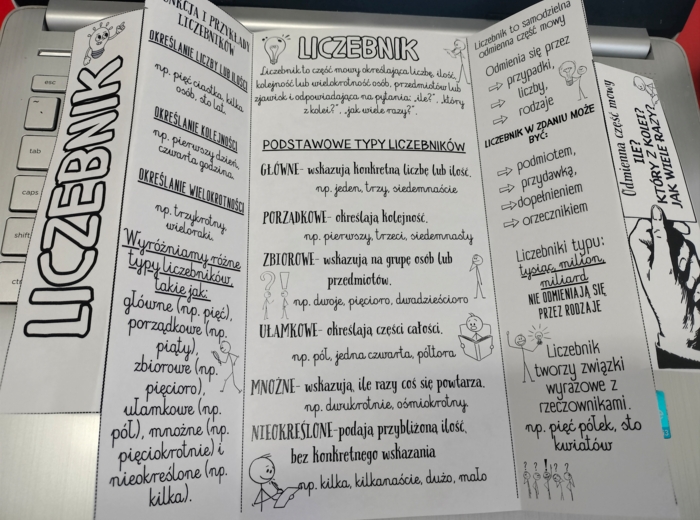 LICZEBNIK
FUNKCJA I PRZYKŁADY
LICZEBNIKÓW
OKREŚLANIE LICZBY LUB ILOŚCI
np. pięć ciastka, kilka
osób, sto lat.
OKREŚLANIE KOLEJNOŚCI
np. pierwszy dzień,
czwarta godzina.
OKREŚLANIE WIELOKROTNOŚCI
np. trzykrotny
wieloraki.
Wyróżniamy różne
typy liczebników,
takie jak:
główne (np. pięć),
porządkowe (np.
piąty),
zbiorowe (np.
pięcioro),
ułamkowe (np.
pół), mnożne (np.
pięciokrotnie) i
nieokreślone (np.
kilka).
LICZEBNIK
Liczebnik to część mowy określająca liczbę, ilość,
kolejność lub wielokrotność osób, przedmiotów lub
zjawisk i odpowiadająca na pytania: „ile?”, „który
z kolei?”, „jak wiele razy?”.
PODSTAWOWE TYPY LICZEBNIKÓW
GŁÓWNE- wskazują konkretną liczbę lub ilość.
np. jeden, trzy, siedemnaście
PORZĄDKOWE- określają kolejność.
np. pierwszy, trzeci, siedemnasty
ZBIOROWE- wskazują na grupę osób lub
przedmiotów.
np. dwoje, pięcioro, dwadzieścioro
UŁAMKOWE- określają części całości.
np. pół, jedna czwarta, półtora
MNOŻNE- wskazują, ile razy coś się powtarza.
np. dwukrotnie, ośmiokrotny
NIEOKREŚLONE-podają przybliżoną ilość,
bez konkretnego wskazania
np. kilka, kilkanaście, dużo, mało
Liczebnik to samodzielna
odmienna część mowy
Odmienia się przez
⇨ przypadki,
⇨ liczby,
⇨ rodzaje
LICZEBNIK W ZDANIU MOŻE
BYĆ:
⇨ podmiotem,
⇨ przydawką,
⇨ dopełnieniem
⇨ orzecznikiem
Liczebniki typu:
tysiąc, milion,
miliard
NIE ODMIENIAJĄ SIĘ
PRZEZ RODZAJE
Liczebnik
tworzy związki
wyrazowe z
rzeczownikami.
np. pięć półek, sto
kwiatów
Odmienna część mowy
ILE?
KTÓRY Z KOLEI?
JAK WIELE RAZY?
esc
tab
caps
shift